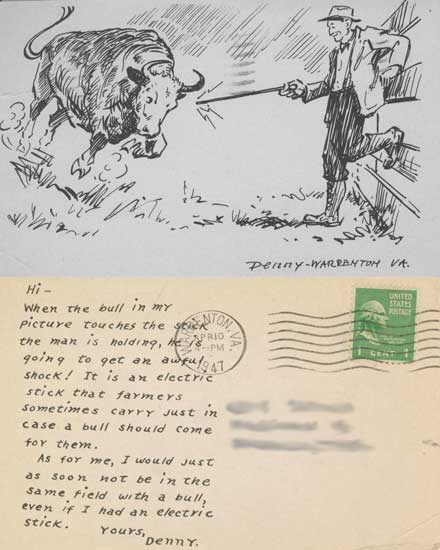 Denny-WARRENTON VA.
Hi-
When the bull in my
picture touches the stick
the man is holding, he is
going to get an awful
shock! It is an electric
stick that farmers
sometimes carry just in
case a bull should come
for them.
As for me, I would just
as soon not be in the
same field with a bull,
even if I had an electric
stick.
Yours,
Denny.
WARRENTON, VA.
APR 10
PM
1947
UNITED STATES
POSTAGE
1 CENT 1